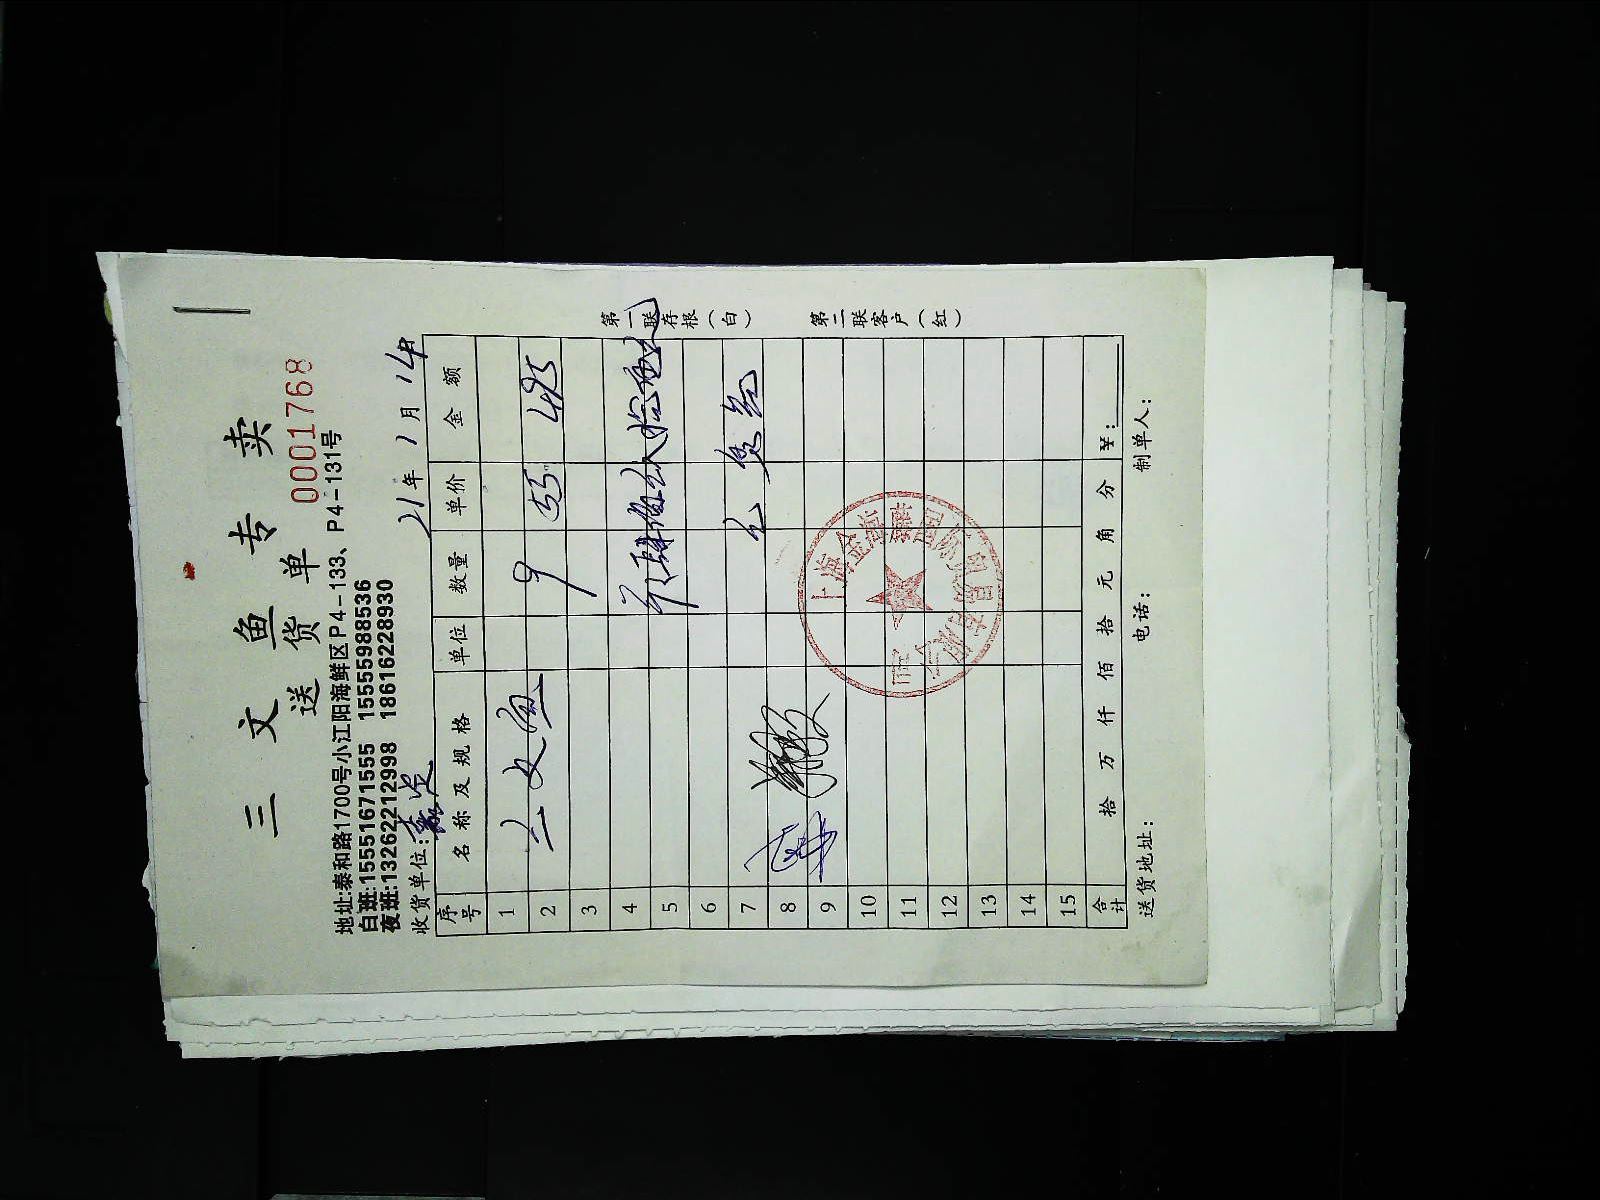 三文鱼专卖
送货单
0001768
地址:泰和路1700号小江阳海鲜区P4-133、P4-131号
白班:15551671555 15555988536
夜班:13262212998 18616228930
收货单位:
21年1月14日
序号 名称及规格 单位 数量 单价 金额
1 三文鱼 9 55 495
2
3
4
5
6
7
8
9
10
11
12
13
14
15
合计 拾 万 仟 佰 拾 元 角 分 ¥:
送货地址: 电话: 制单人:
第一联存根(白)
第二联客户(红)